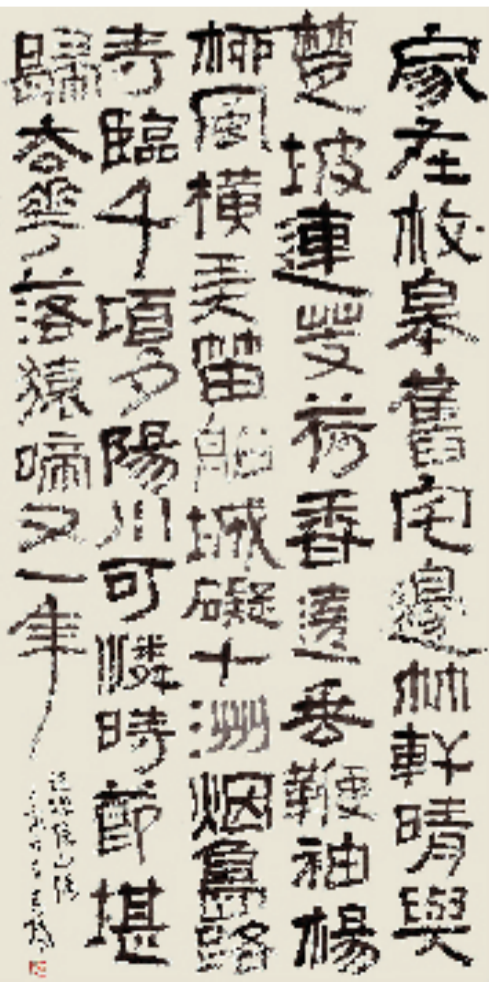 家在枚皋舊宅邊竹軒晴與
楚坡連芰荷香遶垂鞭袖楊
柳風橫弄笛船城礙十洲烟島路
寺臨千頃夕陽川可憐時節堪
歸去華落猿啼又一年